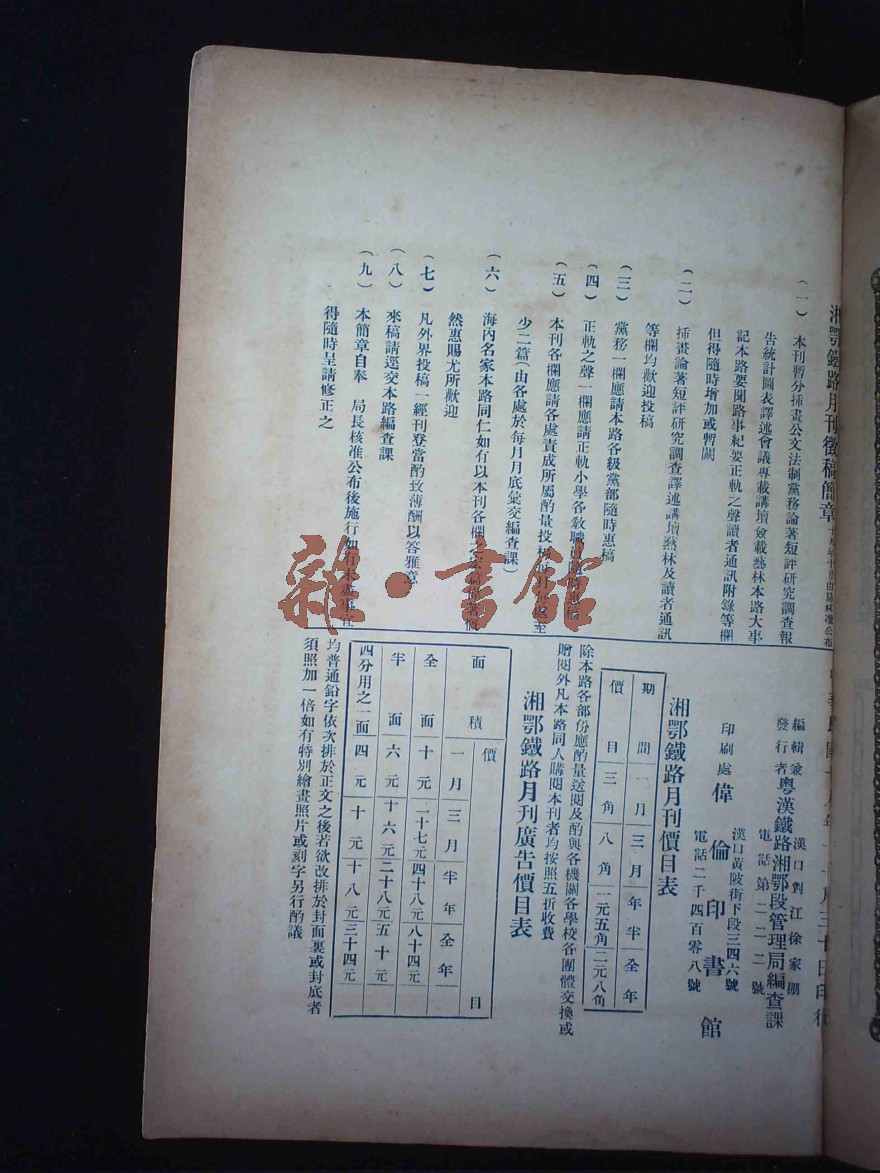 湘鄂鐵路月刊徵稿簡章
(一)本刊暫分揷畫公文法制黨務論著短評研究調查報
告統計圖表譯述會議專載講壇僉載藝林本路大事
記本路要聞路事紀要正軌之聲讀者通訊附錄等欄
但得隨時增加或暫闕
(二)揷畫論著短評研究調查譯述講壇藝林及讀者通訊
等欄均歡迎投稿
(三)黨務一欄應請本路各級黨部隨時惠稿
(四)正軌之聲一欄應請正軌小學各敎職
(五)本刊各欄應請各處責成所屬酌量投稿
少二篇(由各處於每月月底彙交編查課)
(六)海內名家本路同仁如有以本刊各欄
然惠賜尤所歡迎
(七)凡外界投稿一經刊登當酌致薄酬以答雅意
(八)來稿請逕交本路編查課
(九)本簡章自奉 局長核准公布後施行如有未盡事宜
得隨時呈請修正之
編輯兼發行者 粵漢鐵路湘鄂段管理局編查課
漢口對江徐家棚
電話第二二二號
印刷處 偉倫印書館
漢口黃陂街下段三四六號
電話二千四百零八號
湘鄂鐵路月刊價目表
期間 一月 三月 半年 全年
價目 三角 八角 一元五角 二元八角
除本路各部份應酌量送閱及酌與各機關各學校各團體交換或
贈閱外凡本路同人購閱本刊者均按照五折收費
湘鄂鐵路月刊廣告價目表
面積 價目
一月 三月 半年 全年
全面 十元 二十七元 四十八元 八十四元
半面 六元 十六元 二十八元 五十元
四分之一面 四元 十元 十八元 三十四元
均普通鉛字依次排於正文之後若欲改排於封面裏或封底者
須照加一倍如有特別繪畫照片或刻字另行酌議
雜·書館